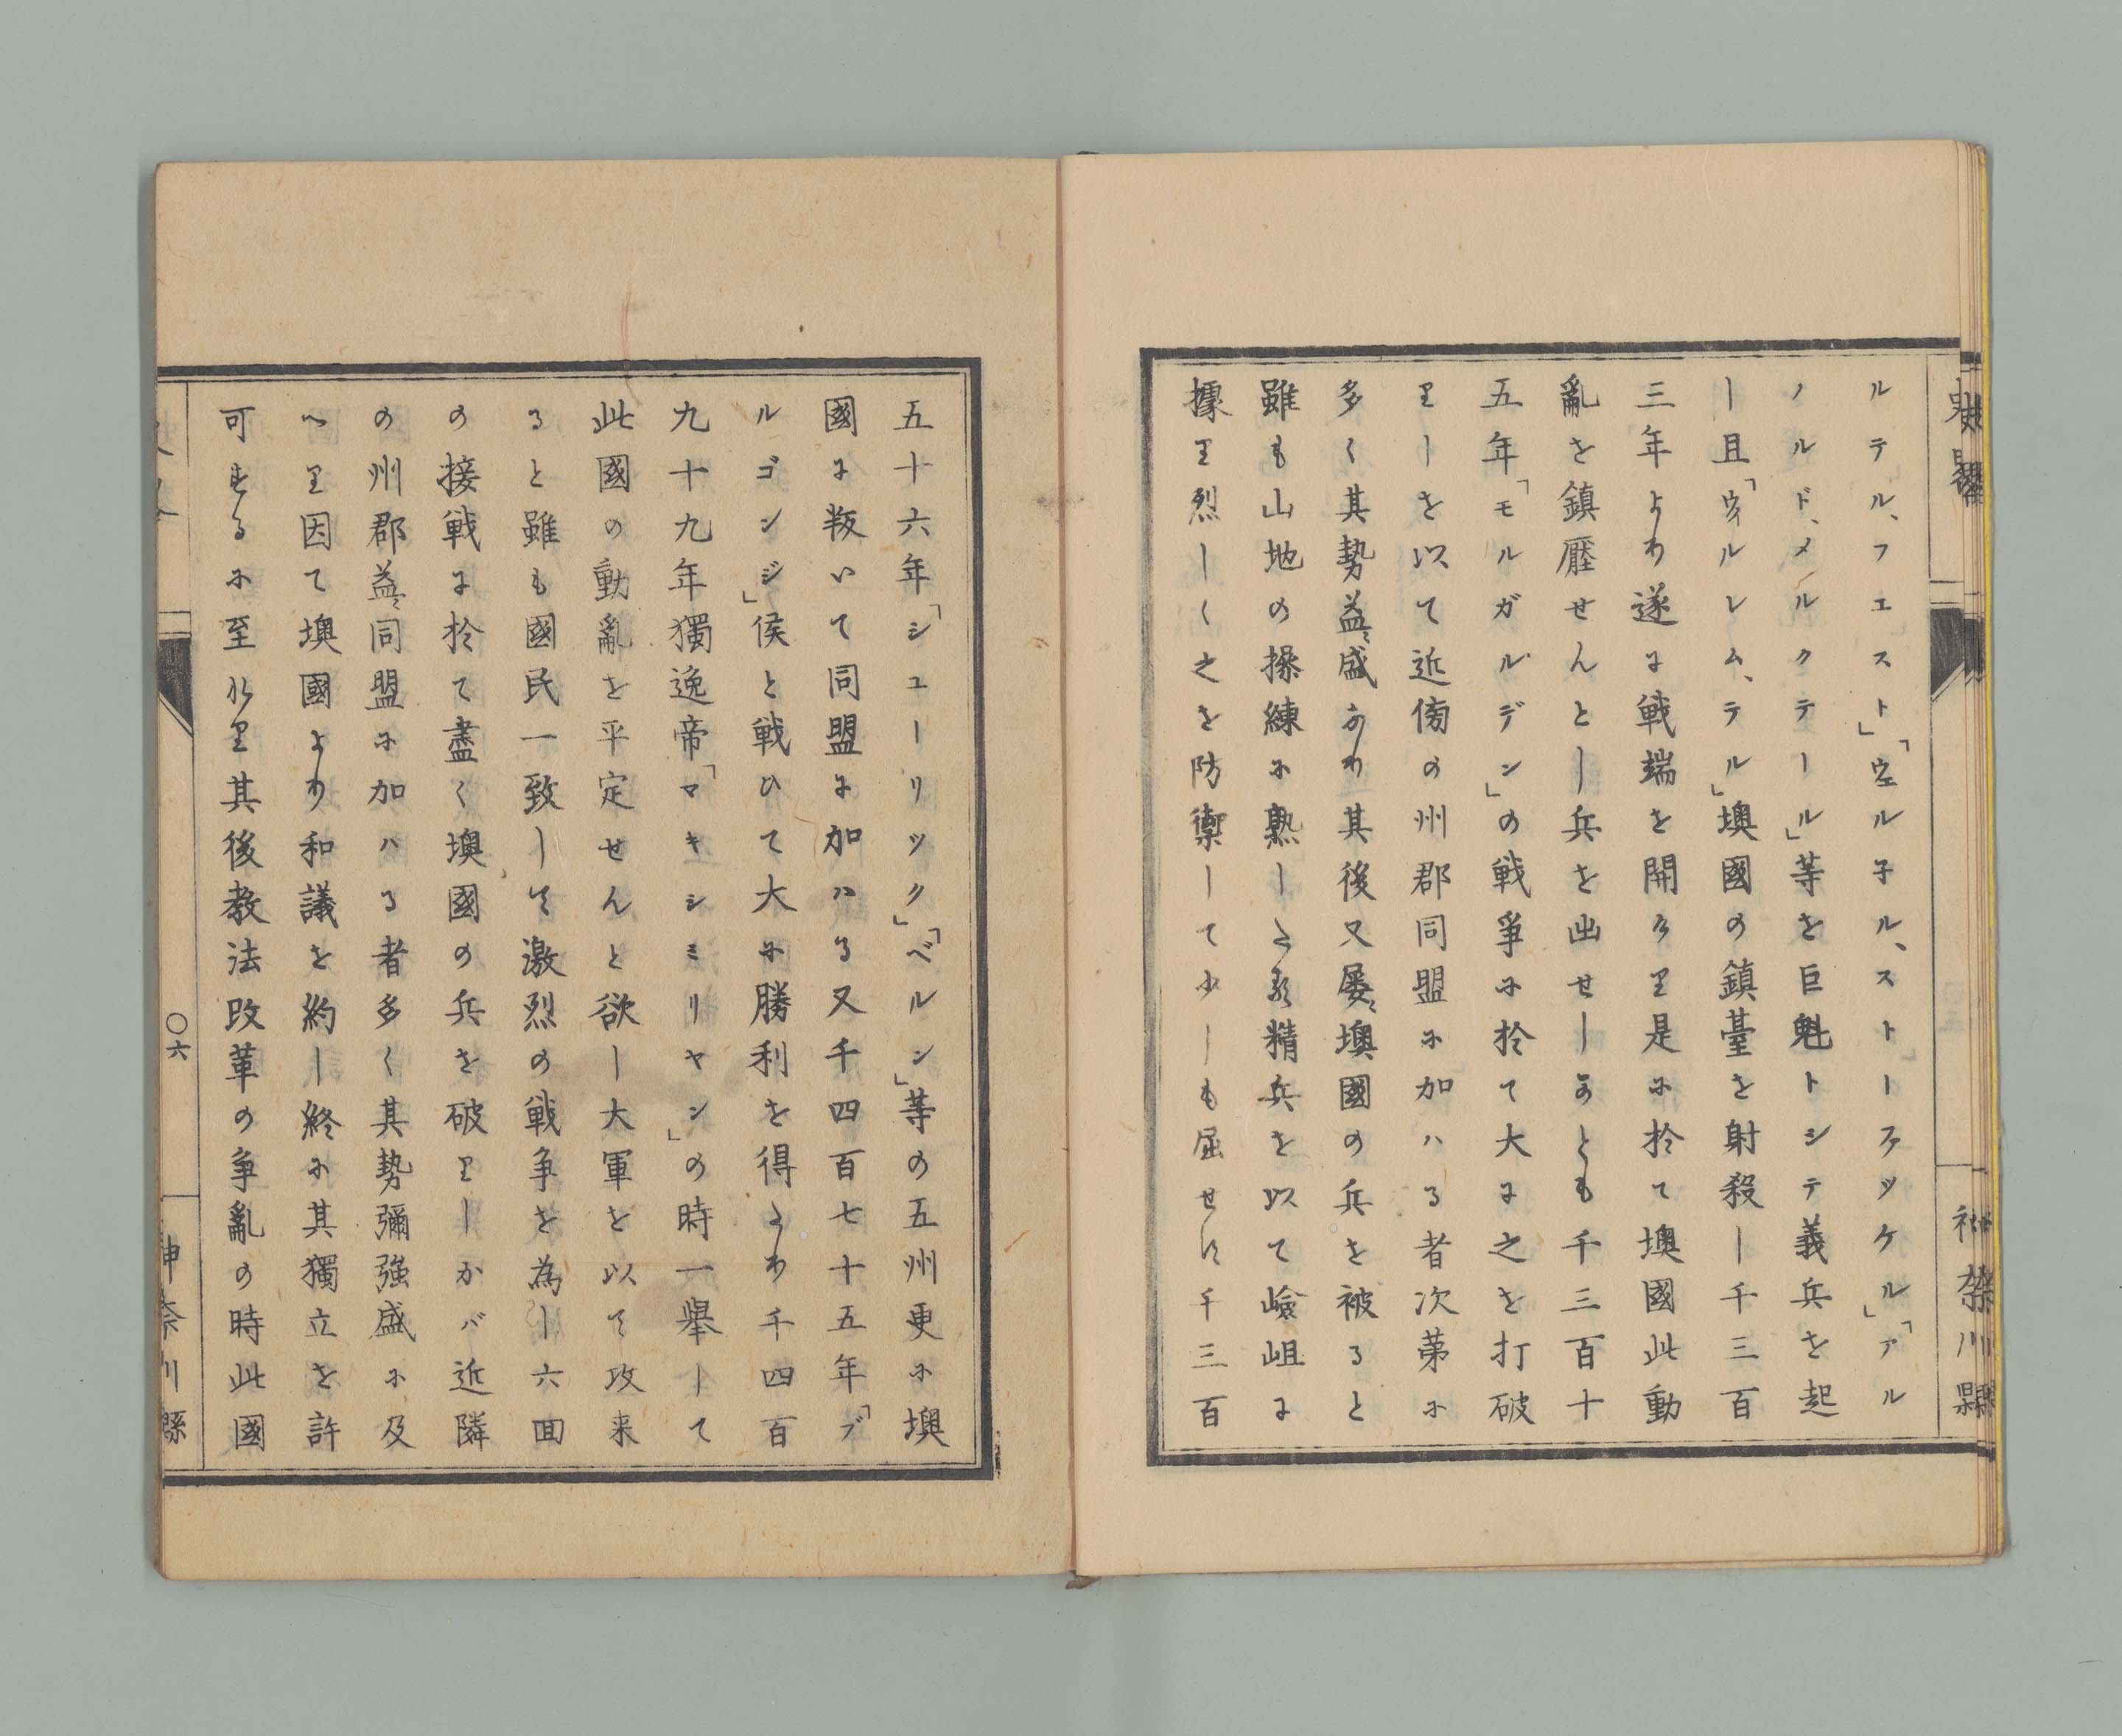 ルテル、フエスト」「ウエル子ル、ストーフツケル」「アル
ノルド、メルクテール」等を巨魁トシテ義兵を起
し且「ウイルレム、テル」墺國の鎮臺を射殺し千三百
三年より遂に戦端を開けり是に於て墺國此動
亂を鎮壓せんとし兵を出せしかとも千三百十
五年「モルガルデン」の戦爭に於て大に之を打破
りしを以て近傍の州郡同盟に加ハる者次第に
多く其勢益〻盛なり其後又屡〻墺國の兵を被ると
雖も山地の操練に熟したる精兵を以て嶮岨に
據り烈しく之を防禦して少しも屈せす千三百
五十六年「シユーリツク」「ベルン」等の五州更に墺
國に叛いて同盟に加ハる又千四百七十五年「ブ
ルゴンジ」侯と戦ひて大に勝利を得たり千四百
九十九年獨逸帝「マキシミリヤン」の時一舉して
此國の動亂を平定せんと欲し大軍を以て攻来
ると雖も國民一致して激烈の戦争を為し六回
の接戦に於て盡く墺國の兵を破りしかバ近隣
の州郡益〻同盟に加ハる者多く其勢彌強盛に及
へり因て墺國より和議を約し終に其獨立を許
可するに至れり其後教法改革の争亂の時此國
〇六
神奈川縣